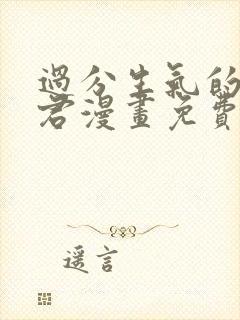 過分生氣的
君漫畫免費
遥言